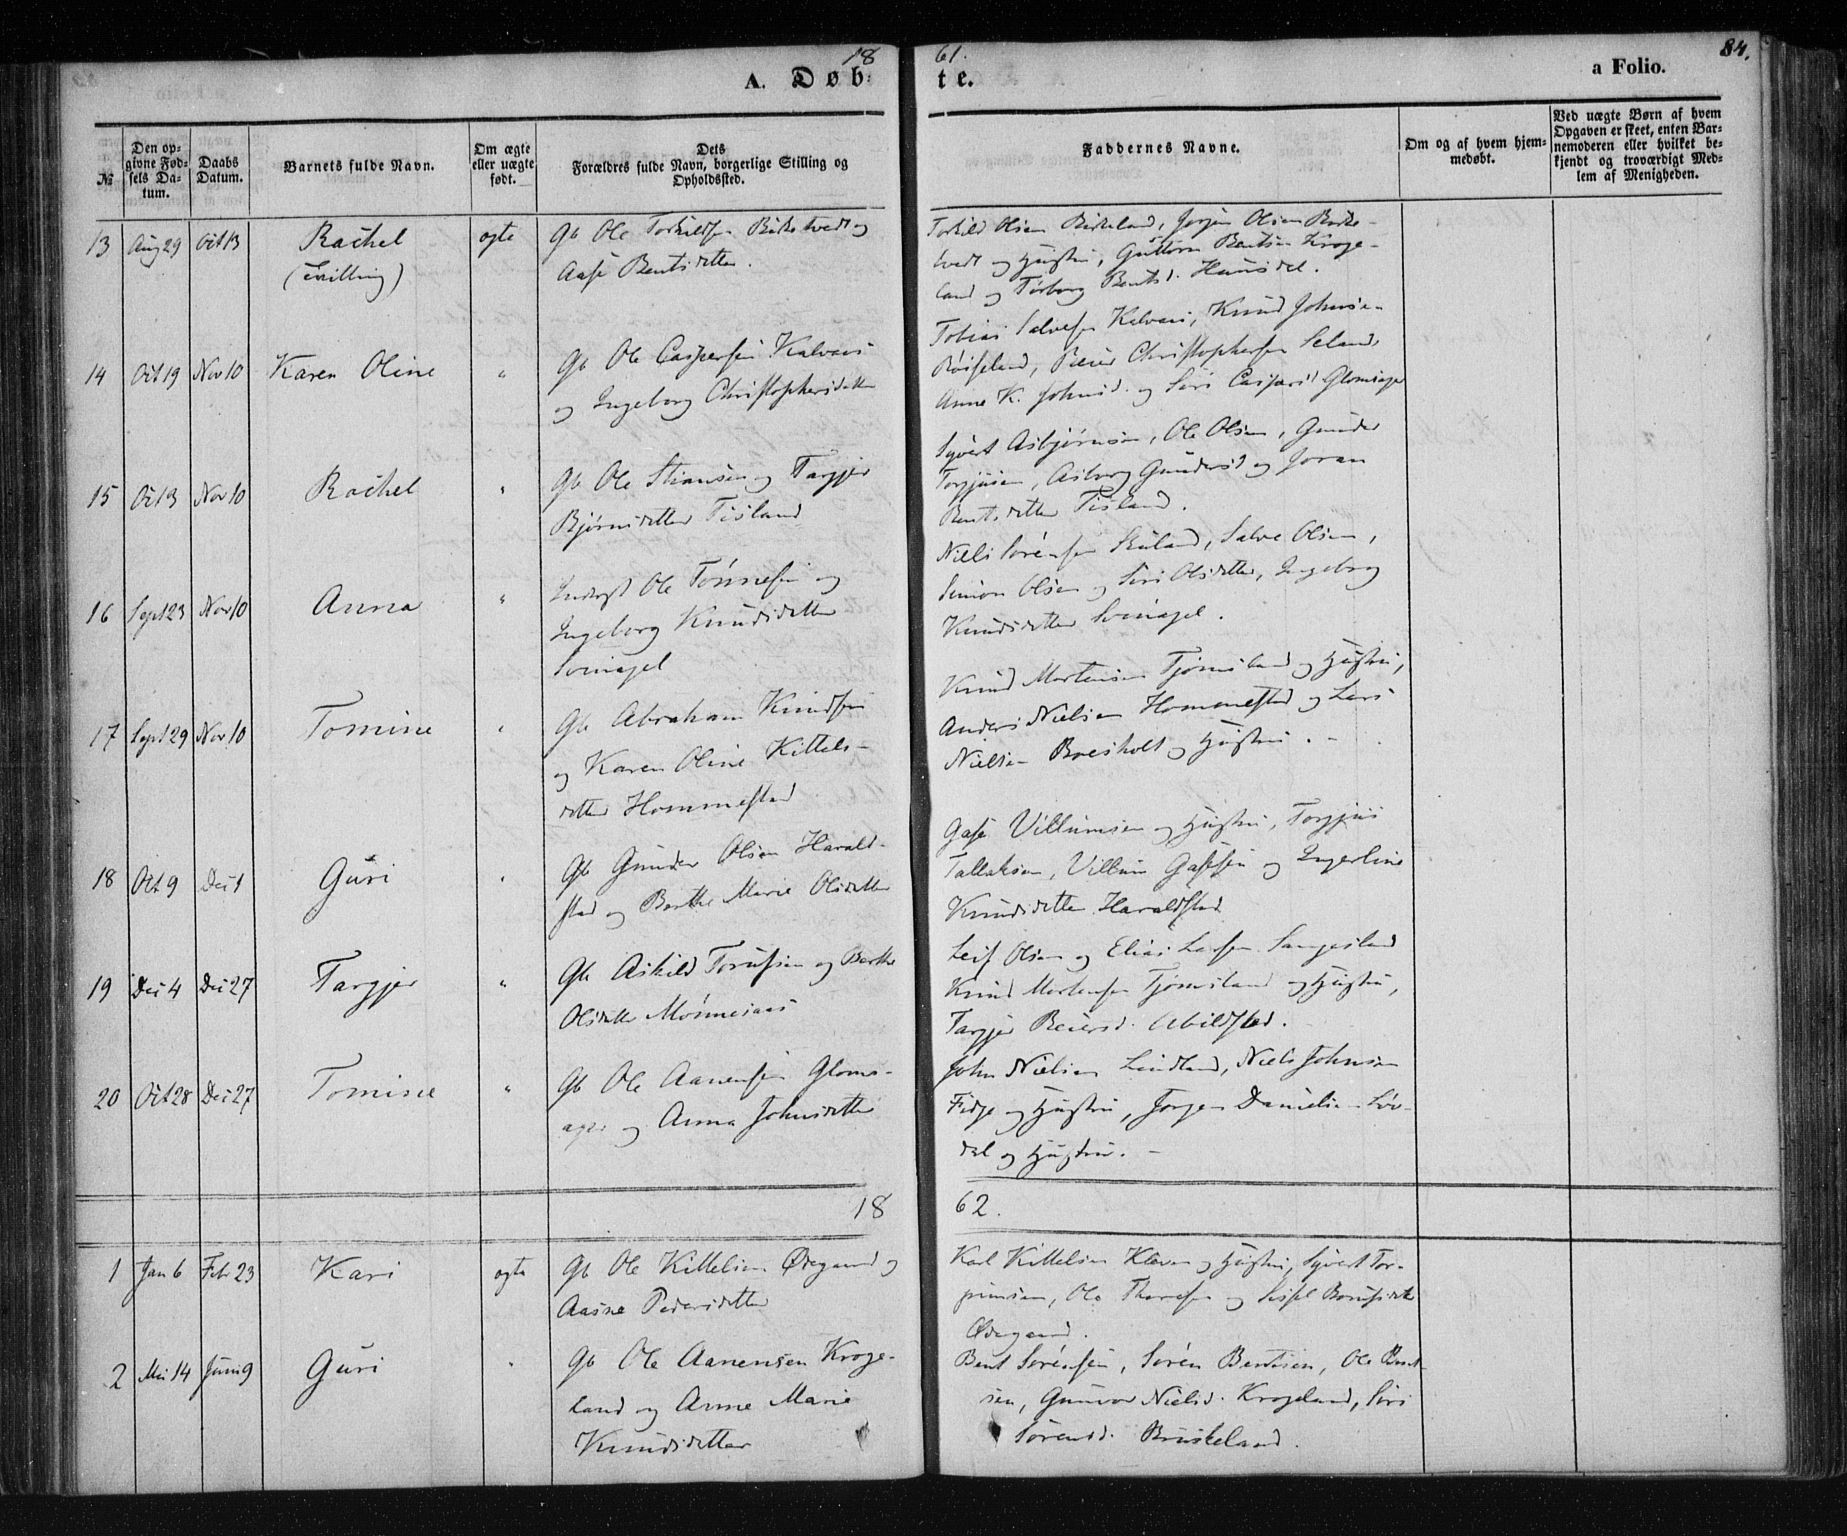 18 61. 84.
A. Døbte. a Folio.
No
Den opgivne Fødsels Datum.
Daabs Datum.
Barnets fulde Navn.
Om ægte eller uægte født.
Dets Forældres fulde Navn, borgerlige Stilling og Opholdssted.
Faddernes Navne.
Om og af hvem hjemmedøbt.
Ved uægte Børn af hvem Opgaven er skeet, enten Barnemoderen eller hvilket bekjendt og troværdigt Medlem af Menigheden.
13 Aug 29 Oct 13 Rachel ægte Gb Ole Torkildsen Birketvedt og
(tvilling) Aase Bentsdatter.
Torkild Olsen Birkeland, Jørgen Olsen Birke-
tvedt og Hustru, Guttorm Bentsen Kroge-
land og Torborg Bentsd. Hunsdal.
14 Oct 19 Nov 10 Karen Oline " Gb Ole Caspersen Kalvaas
og Ingeborg Christophersdatter
Tobias Salvesen Kalvaas, Knud Johnsen
Røiseland, Peder Christophersen Seland,
Anne K. Johnsd. og Siri Caspersd Glomsager
15 Oct 3 Nov 10 Rachel " Gb Ole Stiansen og Targjer
Bjørnsdatter Tisland
Syvert Asbjørnsen, Ole Olsen, Gunder
Torgjusen, Asborg Gundersd og Joran
Bentsdatter Tisland.
16 Sept 23 Nov 10 Anna " Inderst Ole Tønnesen og
Ingeborg Knudsdatter
Niels Sørensen, Salve Olsen,
Simon Olsen og Siri Olsdatter, Ingeborg
Knudsdatter
17 Sept 29 Nov 10 Tomine " Gb Abraham Knudsen
og Karen Oline Kittels-
datter Hommestad
Knud Mortensen Tjomsland og Hustru,
Anders Nielsen Hommestad og Lars
Nielsen og Hustru.
18 Oct 9 Dec 1 Guri " Gb Gunder Olsen Harald-
stad og Berthe Marie Olsdatter
Gase Villumsen og Hustru, Torgjus
Tallaksen, Villum Gasesen og Ingerline
Knudsdatter Haraldstad
19 Dec 4 Dec 27 Targjer " Gb Askild og Berthe
Olsdatter Mønnesaas
Leif Olsen og Elias Sangesland
Knud Mortensen Tjomsland og Hustru,
Targjer Abildsted.
20 Oct 28 Dec 27 Tomine " Gb Ole Aanensen Gloms-
ager og Anna Johnsdatter
John Nielsen Lindland, Niels Johnsen
Fidje og Hustru, Jørgen Danielsen Løv-
dal og Hustru. -
18 62.
1 Jan 6 Febr 23 Kari ægte Gb Ole Kittelsen Ødegaard og
Aasne Pedersdatter
Karl Kittelsen Kleven og Hustru, Syvert Tor-
Ole og Sissel
Ødegaard.
2 Mai 14 Juni 9 Guri " Gb Ole Aanensen Kroge-
land og Anne Marie
Knudsdatter
Bent Sørensen, Søren Bentsen, Ole Bent-
sen, Gunvor Nielsd. Krogeland, Siri
Sørensd. Birkeland.